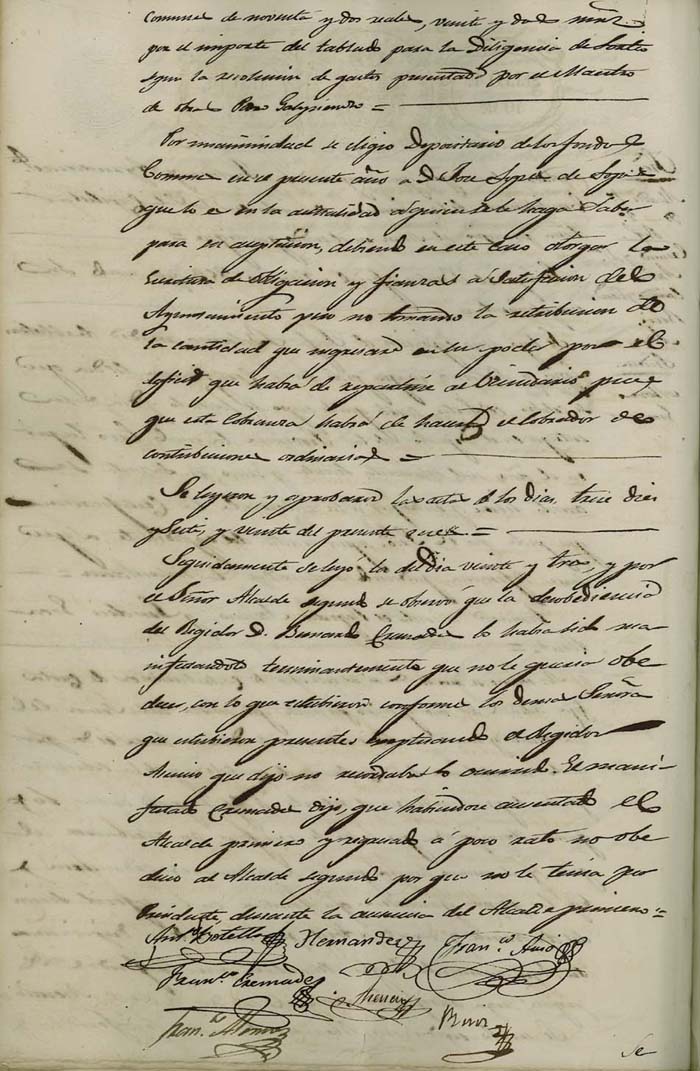 Comunes de noventa y dos reales, veinte y dos mrs.
por el importe del tablado para la diligencia de Sorteo
segun la relacion de gastos presentada por el Maestro
de obras =
Por unanimidad se eligio Depositario de los fondos
Comunes en el presente año a D. Jose
que lo es en la actualidad a quien se le haga saber
para su aceptacion, debiendo en este caso otorgar la
Escritura de obligacion y fianzas a satisfaccion del
Ayuntamiento pero no tomando la retribucion de
la cantidad que ingresare en su poder por el
deficit que habrá de repartirse al Vecindario, pues
que esta cobranza habrá de hacer el Cobrador de
contribuciones ordinarias =
Se leyeron y aprobaron las actas de los dias trece diez
y siete, y veinte del presente mes. =
Seguidamente se leyó la del dia veinte y tres, y por
el Señor Alcalde segundo se observó que la desobediencia
del Regidor D. Cremades lo habia sido ma-
nifestandole terminantemente que no le queria obe-
decer, con lo que estubieron conformes los demas Señores
que estubieron presentes exceptuando el Regidor
Asencio que dijo no recordaba lo ocurrido. El mani-
festado Cremades dijo, que habiendose ausentado el
Alcalde primero y regresado á poco rato no obe-
decio al Alcalde segundo por que no le tenia por
Presidente durante la ausencia del Alcalde primero =
Anto. Botella Hernandez Franco.
Franco. Cremades
Franco.
Se